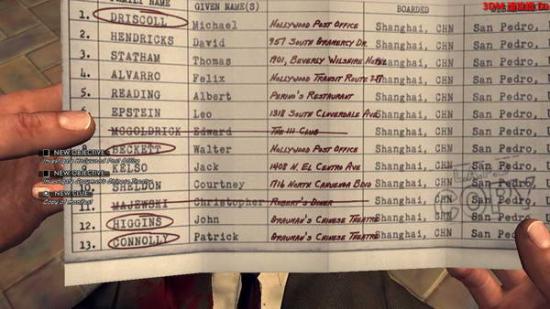 FAMILY NAME GIVEN NAME(S) BOARDED
1. DRISCOLL Michael HOLLYWOOD POST OFFICE Shanghai, CHN San Pedro,
2. HENDRICKS David 957 SOUTH GRAMERCY DR. Shanghai, CHN San Pedro,
3. STATHAM Thomas 9501, BEVERLY WILSHIRE HOTEL Shanghai, CHN San Pedro,
4. ALVARRO Felix HOLLYWOOD TRANSIT ROUTE Shanghai, CHN San Pedro,
5. READING Albert PERINO'S RESTAURANT Shanghai, CHN San Pedro,
6. EPSTEIN Leo 1318 SOUTH CLOVERDALE AVE Shanghai, CHN San Pedro,
MCGOLDRICK Edward THE 111 CLUB Shanghai, CHN San Pedro,
BECKETT Walter HOLLYWOOD POST OFFICE Shanghai, CHN San Pedro,
KELSO Jack 1408 N. EL CENTRO AVE Shanghai, CHN San Pedro,
10. SHELDON Courtney 1716 NORTH CARDENIA BLVD Shanghai, CHN San Pedro,
11. MAJEWSKI Christopher ROBERT'S DINER Shanghai, CHN San Pedro,
12. HIGGINS John GRAUMAN'S CHINESE THEATRE Shanghai, CHN San Pedro
13. CONNOLLY Patrick GRAUMAN'S CHINESE THEATRE Shanghai, CHN San Pedro
NEW OBJECTIVE
Hollywood Post Office
NEW OBJECTIVE
NEW CLUE
3DM